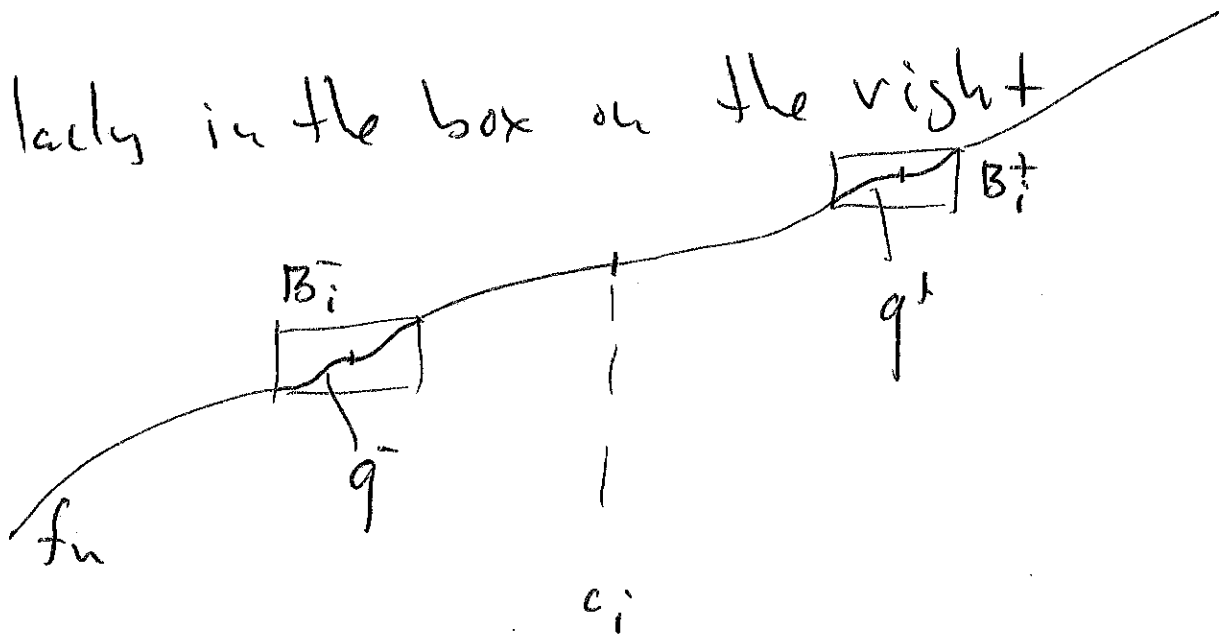 larly in the box on the right
B_i^+
B_i^-
g^+
g^-
f_n
c_i